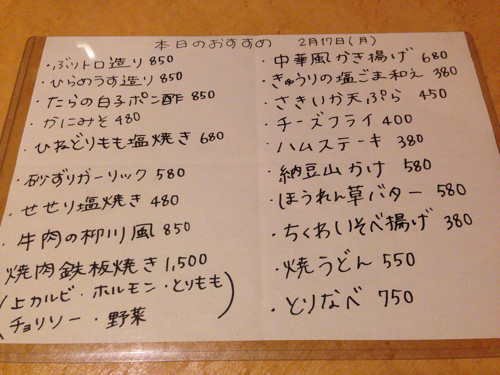 本日のおすすめ 2月17日(月)
・ぶりトロ造り 850
・ひらめうす造り 850
・たらの白子ポン酢 850
・かにみそ 480
・ひねどりもも塩焼き 680
・砂ずりガーリック 580
・せせり塩焼き 480
・牛肉の柳川風 850
・焼肉鉄板焼き 1,500
(上カルビ・ホルモン・とりもも
チョリソー・野菜)
・中華風かき揚げ 680
・きゅうりの塩ごま和え 380
・さきいか天ぷら 450
・チーズフライ 400
・ハムステーキ 380
・納豆山かけ 580
・ほうれん草バター 580
・ちくわいそべ揚げ 380
・焼うどん 550
・とりなべ 750